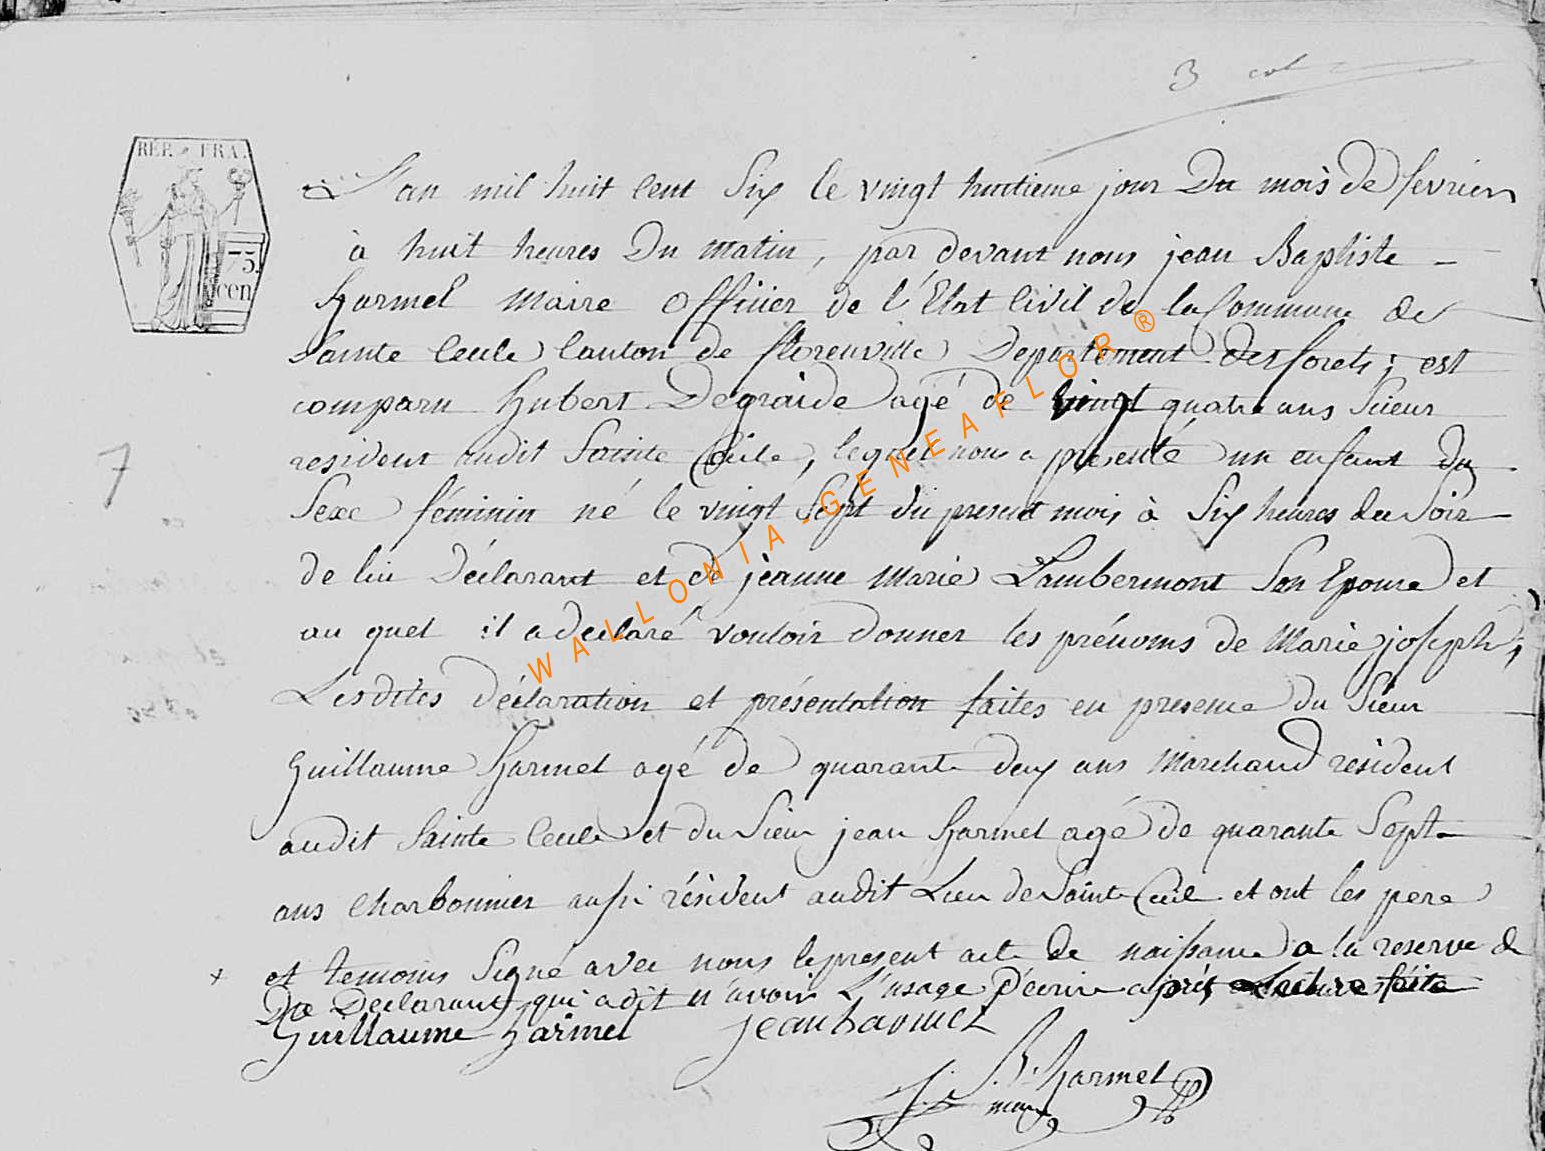 3 col
REP. FRA.
75.
cen
L'an mil huit Cent Six le vingt huitieme jour Du mois de fevrier
à huit heures Du matin, par devant nous jean Baptiste
harmel Maire Officier de l'Etat Civil de la Commune de
Sainte Cecile Canton de florenville Departement des forets ; est
comparu hubert Degraide agé de vingt quatre ans Scieur
resident audit Sainte Cecile, lequel nous a presenté un enfant du
Sexe féminin né le vingt Sept du present mois à Six heures du Soir
de lui Déclarant et de jeanne Marie Lambermont Son Epouse et
7
au quel il a declaré vouloir donner les prénoms de Marie joseph ;
Lesdites déclaration et présentation faites en presence du Sieur
Guillaume harmel agé de quarante deux ans Marchand resident
audit Sainte Cecile et du Sieur jean harmel agé de quarante Sept
ans Charbonnier aussi résident audit Lieu de Sainte Cecile et ont les pere
+ et temoins Signé avec nous le present acte de naissance a la reserve de
Du Declarant qui a dit n'avoir L'usage D'ecrire après Lecture faite
Guillaume harmel jean harmel
J. B. harmel
maire
WALLONIA-GENEAFLOR®